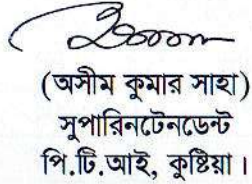 (অসীম কুমার সাহা)
সুপারিনটেনডেন্ট
পি.টি.আই, কুষ্টিয়া।